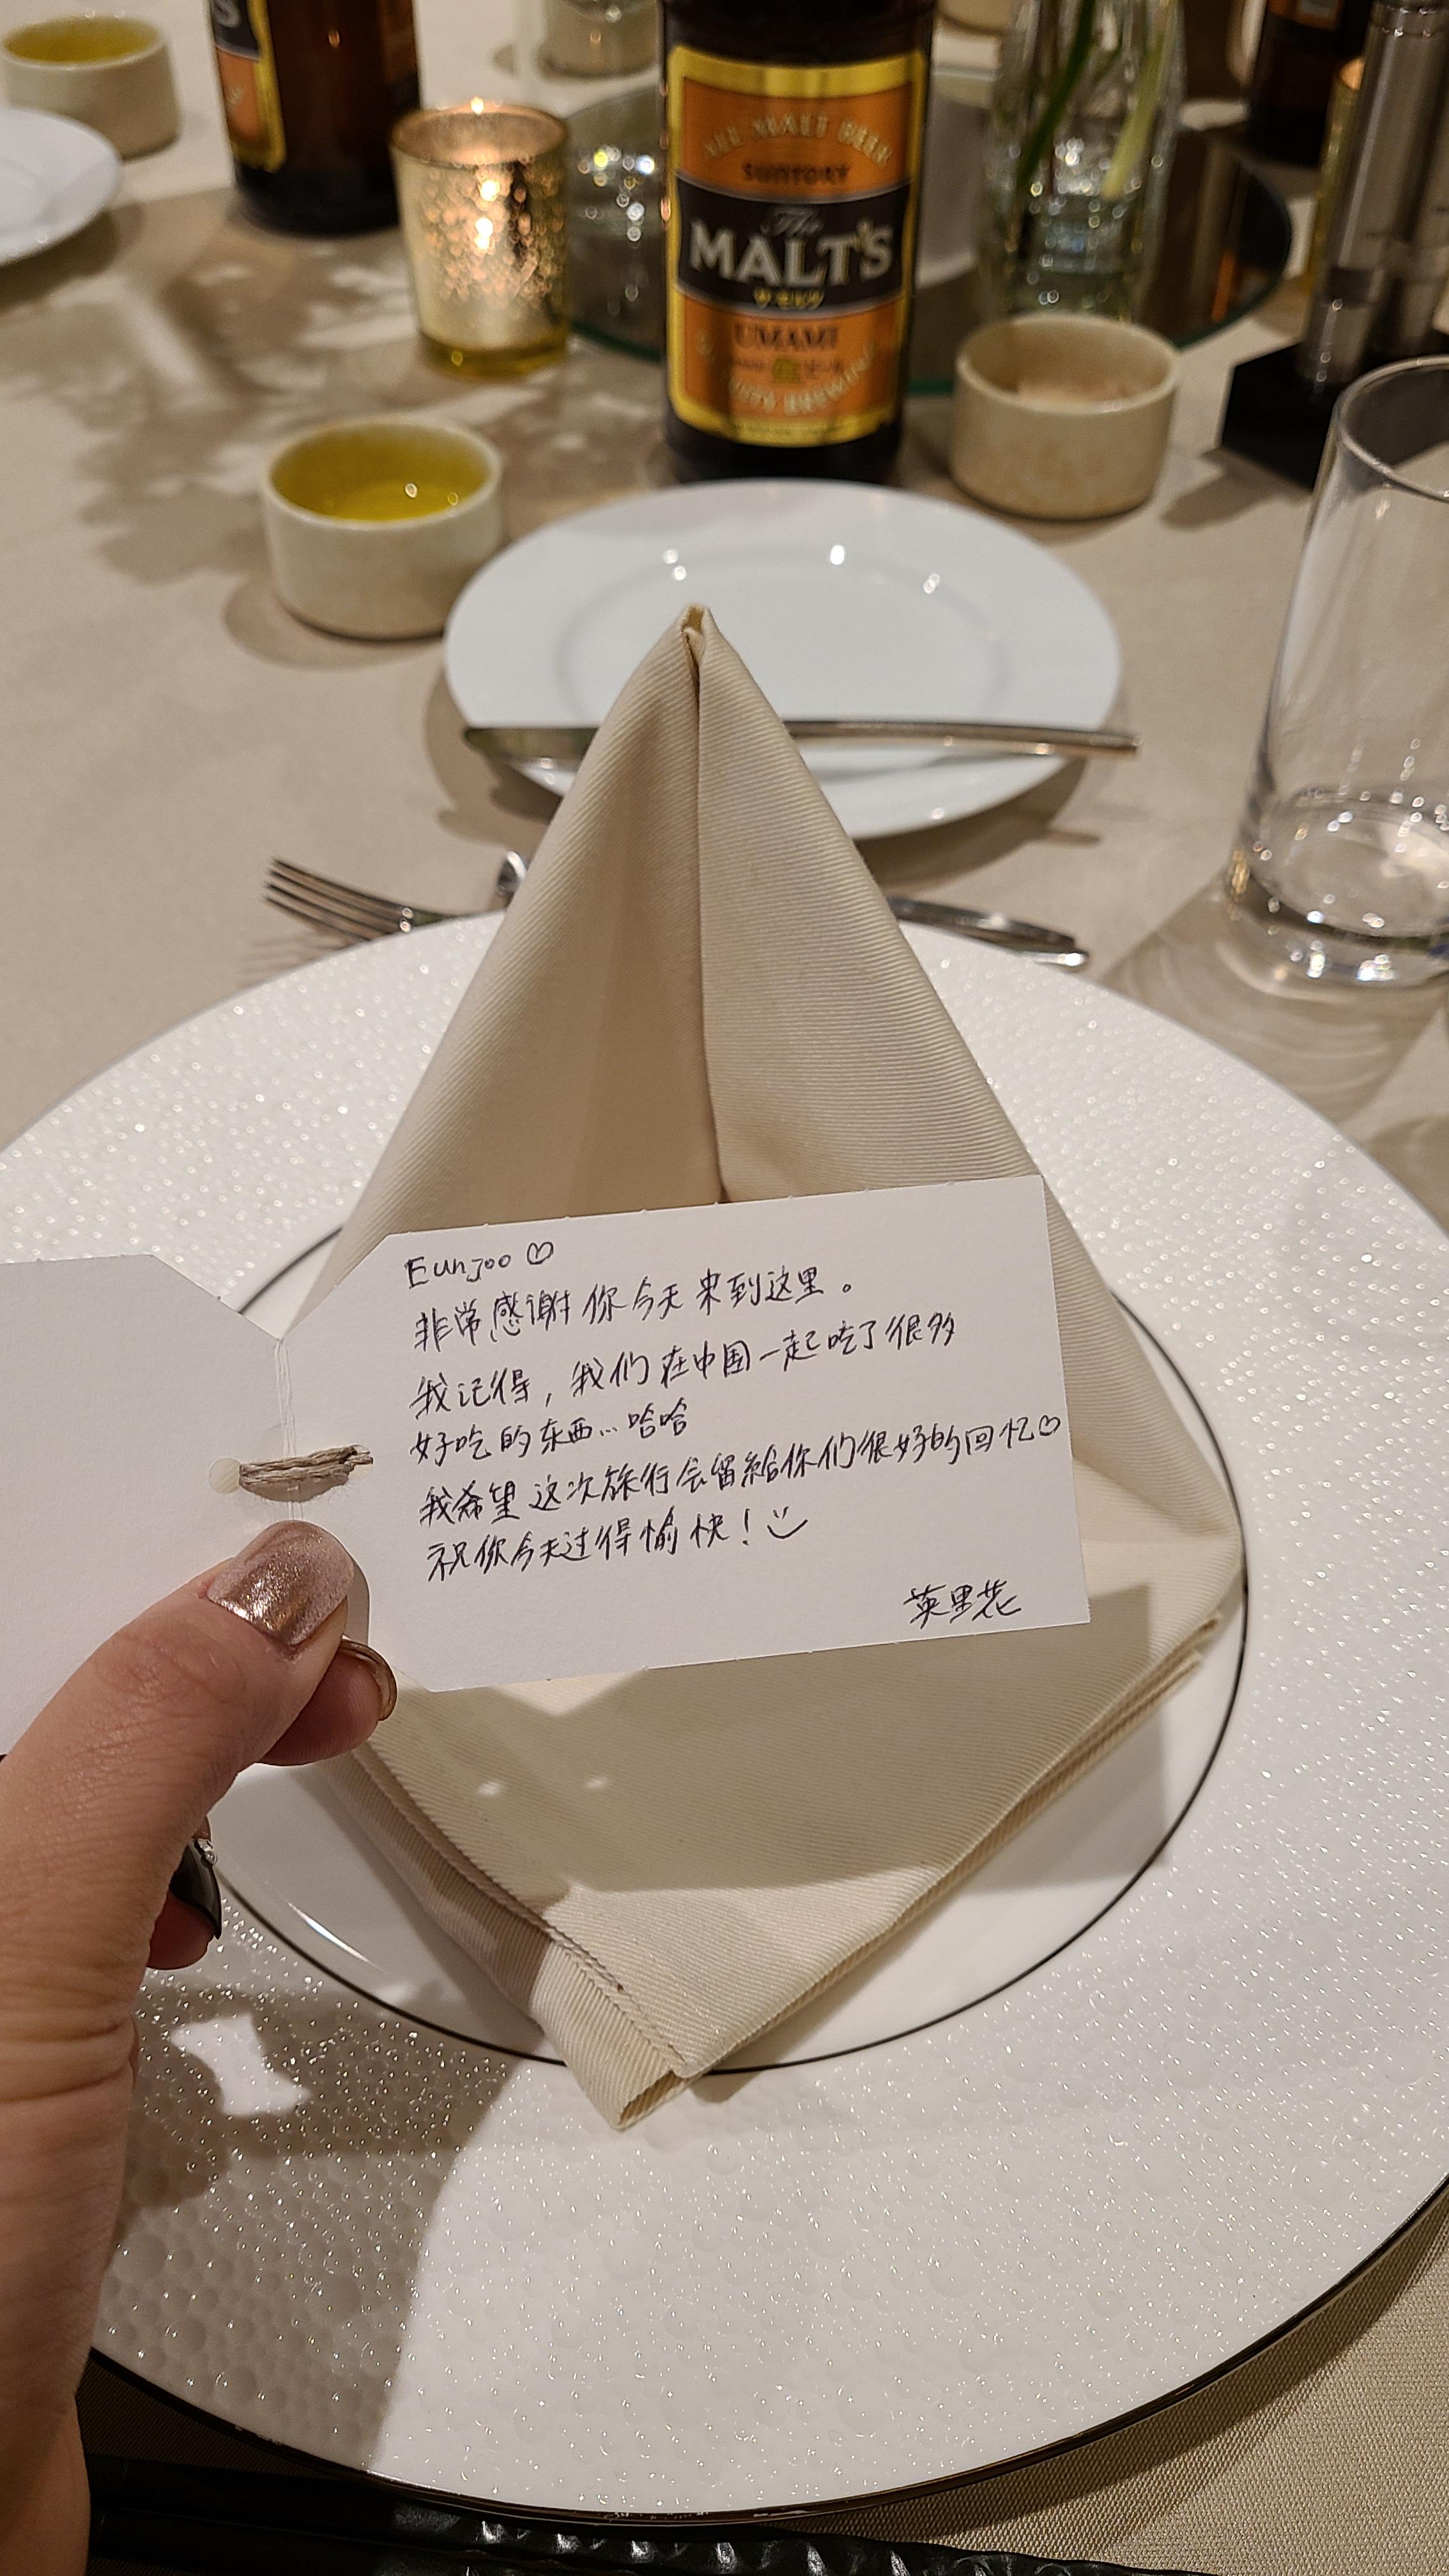 S
ALL MALT BEER
SUNTORY
The
MALT'S
ザ・モルツ
UMAMI
Eunjoo ♡
非常感谢你今天来到这里。
我记得，我们在中国一起吃了很多
好吃的东西…哈哈
我希望这次旅行会留給你们很好的回忆♡
祝你今天过得愉快！
英里花